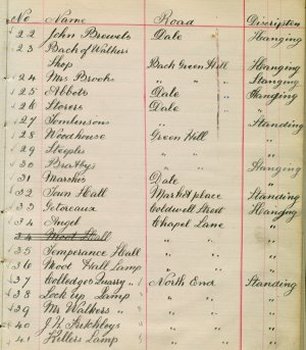 No Name Road Discription
22 John Brewels Dale Hanging
23 Back of Walkers Hanging
Shop Back Green Hill Hanging
24 Mrs Brooks " " Stanging
25 Abbots Dale Hanging
26 Storers Dale "
27 Tomlinsons " Standing
28 Woodhouse Green Hill "
29 Steeples " "
30 Brattys " Hanging
31 Marshs Dale "
32 Town Hall Market place Standing
33 Coldwell Street Hanging
34 Angel Chapel Lane "
34 Moot Hall
35 Temperance Hall " "
36 Moot Hall Lamp " "
37 Colledges Quarry " North End Standing
38 Lock up Lamp " " "
39 Mr Walkers " " " "
40 " " "
41 Killers Lamp " " "